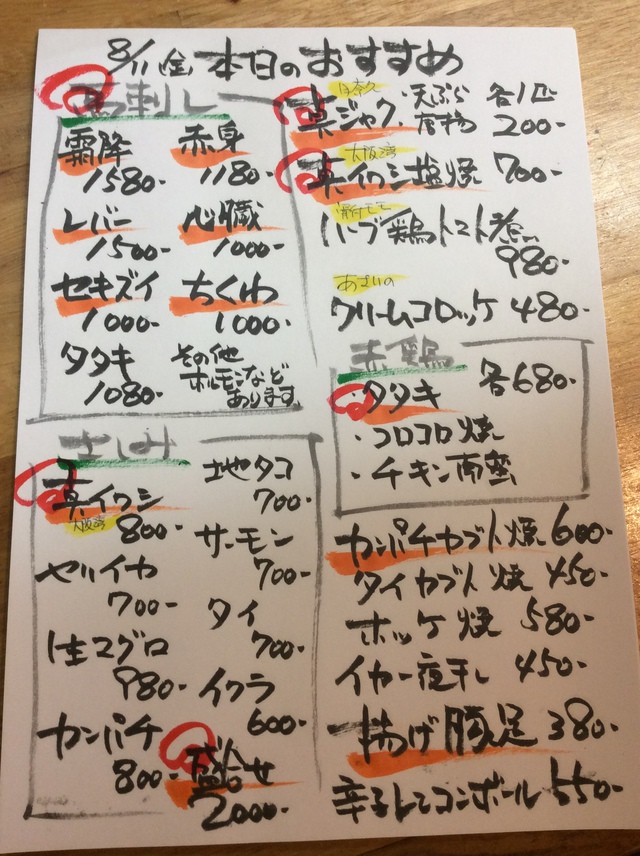 8/11(金) 本日のおすすめ
馬刺し
霜降 赤身
1580- 1180-
レバー 心臓
1500- 1000-
セキズイ ちくわ
1000- 1000-
タタキ
1080-
その他
ホルモンなど
あります。
さしみ
真イワシ
大阪湾
800-
地タコ
700-
サーモン
700-
ヤリイカ
700-
タイ
700-
生マグロ
980-
イクラ
600-
カンパチ
800-
盛合せ
2000-
真ジャク・天ぷら 各1匹
唐揚 200-
大阪湾
真イワシ塩焼 700-
骨付モモ
ハーブ鶏トマト煮
980-
あさりの
クリームコロッケ 480-
赤鶏
各680-
・タタキ
・コロコロ焼
・チキン南蛮
カンパチカブト焼 600-
タイカブト焼 450-
ホッケ焼 580-
イカ一夜干し 450-
揚げ豚足 380-
辛子レンコンボール 550-